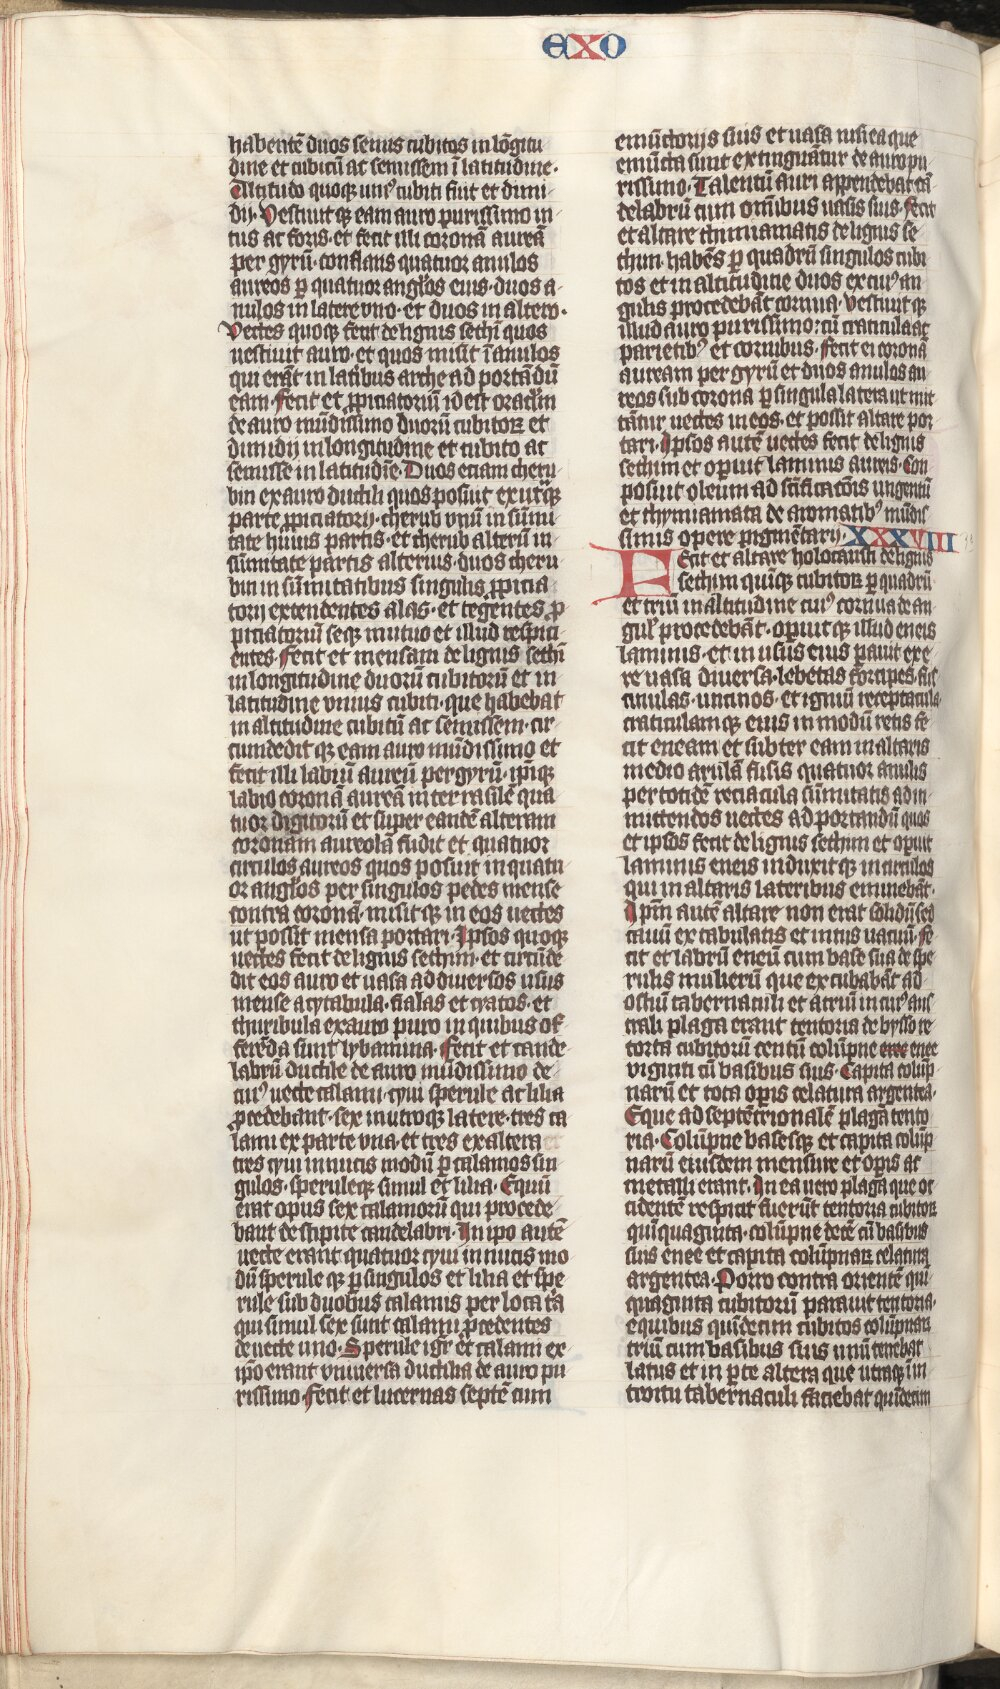 EXO
habentē duos semis cubitos in lōgitu
dine et cubitū ac semissem ī latitudine·
Altitudo quoqꝫ uniꝰ cubiti fuit et dimi
dij· Vestiuit qꝫ eam auro purissimo in
tus ac foris· et fecit illi coronā aureā
per gyrū· conflans quatuor anulos
aureos ꝑ quatuor angłos eius· duos a
nulos in latere vno· et duos in altero·
Vectes quoqꝫ fecit de lignis sethī quos
uestiuit auro· et quos misit ī anulos
qui erāt in latibus arche ad portādū
eam· Fecit et ꝓpiciatoriū id est oraclm̄
de auro mūdissimo duorū cubitoꝝ et
dimidij in longitudine et cubito ac
semisse in latitudīe· Duos etiam cheru
bin ex auro ductili quos posuit ex utͣqꝫ
parte ꝓpiciatorij· cherub vnū in sūmi
tate huius partis· et cherub alterū in
sūmitate partis alterius· duos cheru
bin in sūmitatibus singulis ꝓpicia
torij extendentes alas· et tegentes ꝓ
piciatoriū seqꝫ mutuo et illud respici
entes· Fecit et mensam de lignis sethī
in longitudine duorū cubitorū et in
latitudine vnius cubiti· que habebat
in altitudine cubitū ac semissem· cir
cumdedit qꝫ eam auro mūdissimo et
fecit illi labiū aureū per gyrū· ipīqꝫ
labio coronā aureā inter rasilē qua
tuor digitorū et super eandē alteram
coronam aureolā fudit et quatuor
circulos aureos quos posuit in quatu
or angłos per singulos pedes mense
contra coronā· misit qꝫ in eos uectes
ut possit mensa portari· Ipsos quoqꝫ
uectes fecit de lignis sethim· et circūde
dit eos auro et uasa ad diuersos usus
mense acytabula· fialas et cyatos· et
thuribula ex auro puro in quibus of
ferēda sunt lybamina· Fecit et cande
labrū ductile de auro mūdissimo de
cuiꝰ uecte calami· cyui sperule ac lilia
ꝓcedebant· sex in utroqꝫ latere· tres ca
lami ex parte vna· et tres ex altera
tres cyui in nucis modū ꝑ calamos sin
gulos· speruleqꝫ simul et lilia· Equū
erat opus sex calamorū qui procede
bant de stipite candelabri· In ipo autē
uecte erant quatuor cyui in nucis mo
dū sperule qꝫ ꝑ singulos et lilia et spe
rule sub duobus calamis per loca tͥa
qui simul sex fiūt calami ꝓcedentes
de uecte uno· Sperule igr̄ et calami ex
ipō erant vniuersa ductilia de auro pu
rissimo· Fecit et lucernas septē cum
emūctorijs suis et uasa ubi ea que
emūcta sunt extinguātur de auro pu
rissimo· Talentū auri appendebat cā
delabrū cum om̄ibus uasis suis· Fecit
et altare thimiamatis de lignis se
thim habēs ꝑ quadrū singulos cubi
tos et in altitudine duos ex cuiꝰ an
gulis procedebāt cornua· Vestiuit qꝫ
illud auro purissimo: cū craticula ac
parietibꝰ et cornibus· Fecit ei coronā
auream per gyrū et duos anulos au
reos sub corona ꝑ singula latera ut mit
tātur uectes in eos· et possit altare por
tari· Ipsos autē uectes fecit de lignis
sethim et operuit laminis aureis· Con
posuit oleum ad scīficatōis ungentū
et thymiamata de aromatibꝰ mūdis
simis opere pigmētarij· XXXVIII
Fecit et altare holocausti de lignis
sethim quīqꝫ cubitoꝝ ꝑ quadrū
et triū in altitudine cuiꝰ cornua de an
gulꝭ procedebāt· operuit qꝫ illud eneis
laminis· et in usus eius parauit ex e
re uasa diuersa· lebetas forcipes· fus
cinulas· uncinos· et igniū receptacula·
craticulam qꝫ eius in modū retis fe
cit eneam et subter eam in altaris
medio arulā fusis quatuor anulis
per totidē reciacula sūmitatis ad in
mittendos uectes ad portandū quos
et ipsos fecit de lignis sethim et operuit
laminis eneis induxit qꝫ in circulos
qui in altaris lateribus eminebāt·
Ipm̄ autē altare non erat solidū sed
cauū ex tabulatis et intus uacuū· Fe
cit et labrū eneū cum base sua de spe
culis mulierū que excubabāt ad
ostiū tabernaculi et atriū in cuiꝰ aus
trali plaga erant tentoria de bysso re
torta cubitorū centū colūpne enee
viginti cū basibus suis· Capita colūp
narū et tota opis celatura argentea·
Eque ad septētrionalē plagā tento
ria· Colūpne basesqꝫ et capita colūp
narū eiusdem mensure et opis ac
metalli erant· In ea uero plaga que oc
cidentē respicit fuerūt tentoria cubitoꝝ
quīquaginta· colūpne decē cū basibus
suis enee et capita colūpnaꝝ celatura
argentea· Porro contra orientē qui
quaginta cubitorū parauit tentoria·
e quibus quīdecim cubitos colūpnaꝝ
triū cum basibus suis unū tenebat
latus et in ꝑte altera que utraqꝫ in
troitū tabernaculi faciebat quīdecim